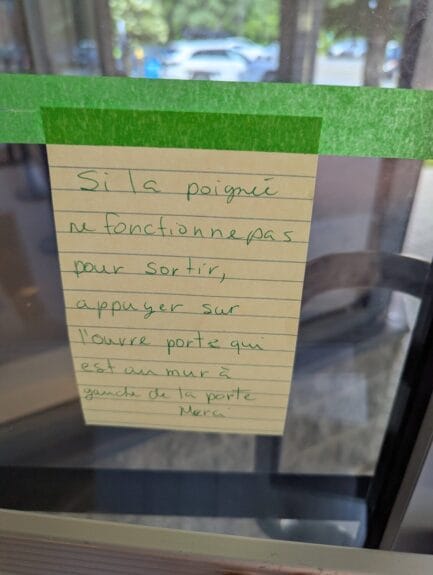 Si la poignée
ne fonctionne pas
pour sortir,
appuyer sur
l'ouvre porte qui
est au mur à
gauche de la porte
Merci